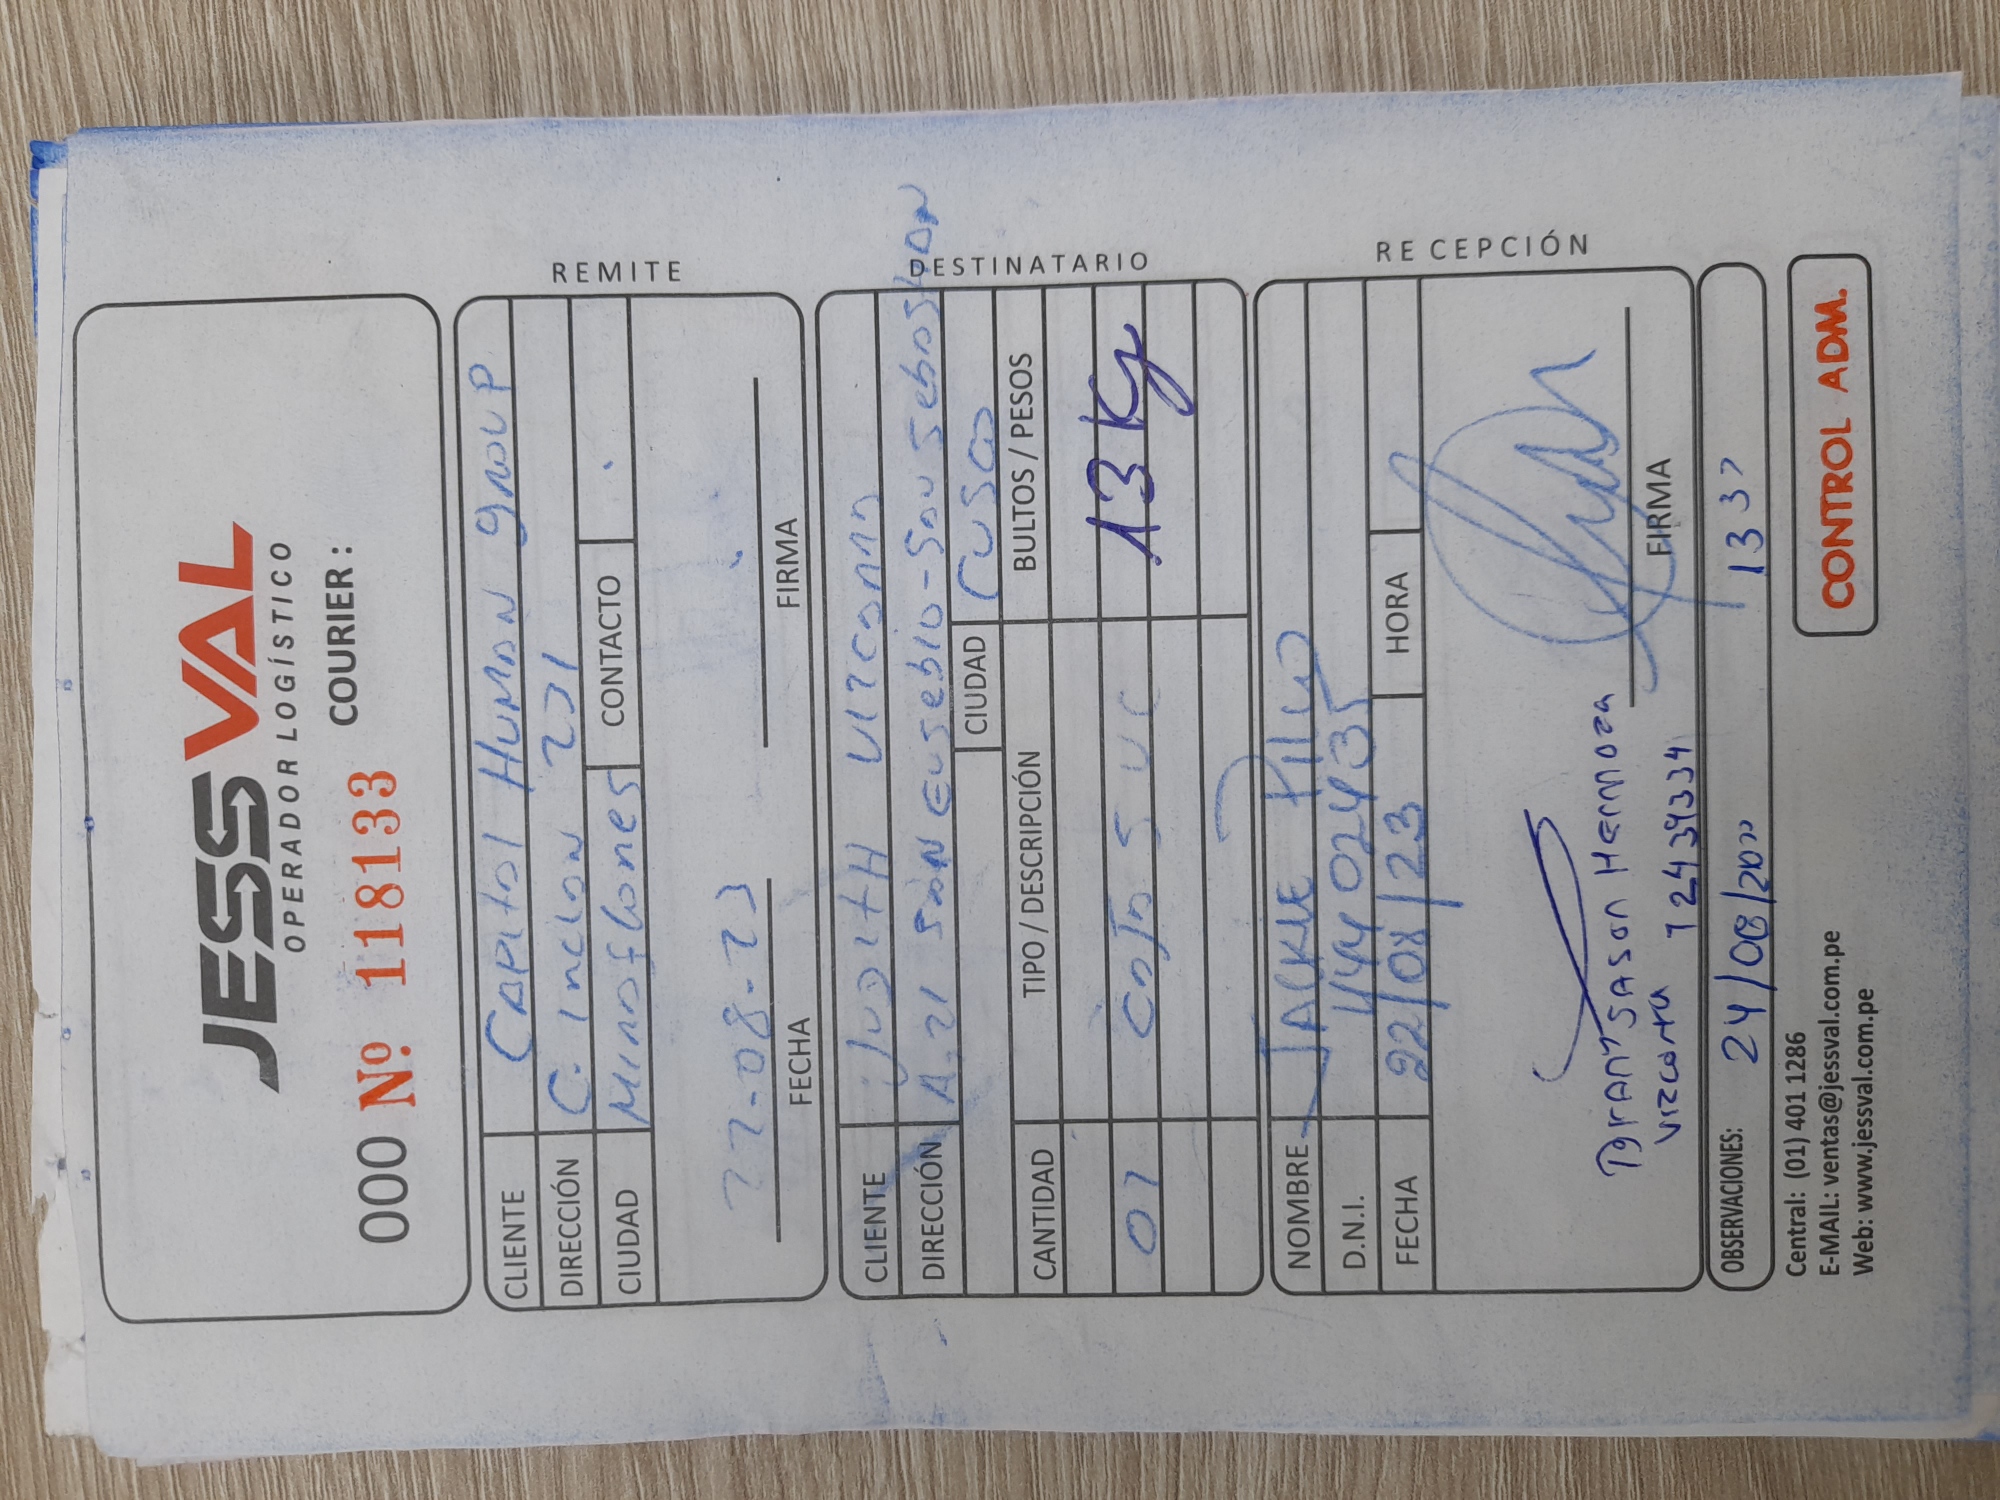 JESSVAL
OPERADOR LOGÍSTICO
COURIER :
000 Nº. 118133
REMITE
CLIENTE CAPital HUMAN group
DIRECCIÓN C. Inclan 231
CIUDAD Miraflores CONTACTO
22-08-23
FECHA FIRMA
DESTINATARIO
CLIENTE JUDITH VIZCARRA
DIRECCIÓN A-21 SAN EUSebio - San Sebastian
CIUDAD CUSCO
CANTIDAD TIPO / DESCRIPCIÓN BULTOS / PESOS
01 CAJA 13 Kg
RECEPCIÓN
NOMBRE JACKIE PILCO
D.N.I. 44402435
FECHA 22/08/23 HORA
BryAn JASON Hermoza
Vizcarra 72439334
FIRMA
OBSERVACIONES: 24/08/20 13 37
Central: (01) 401 1286
E-MAIL: ventas@jessval.com.pe
Web: www.jessval.com.pe
CONTROL ADM.